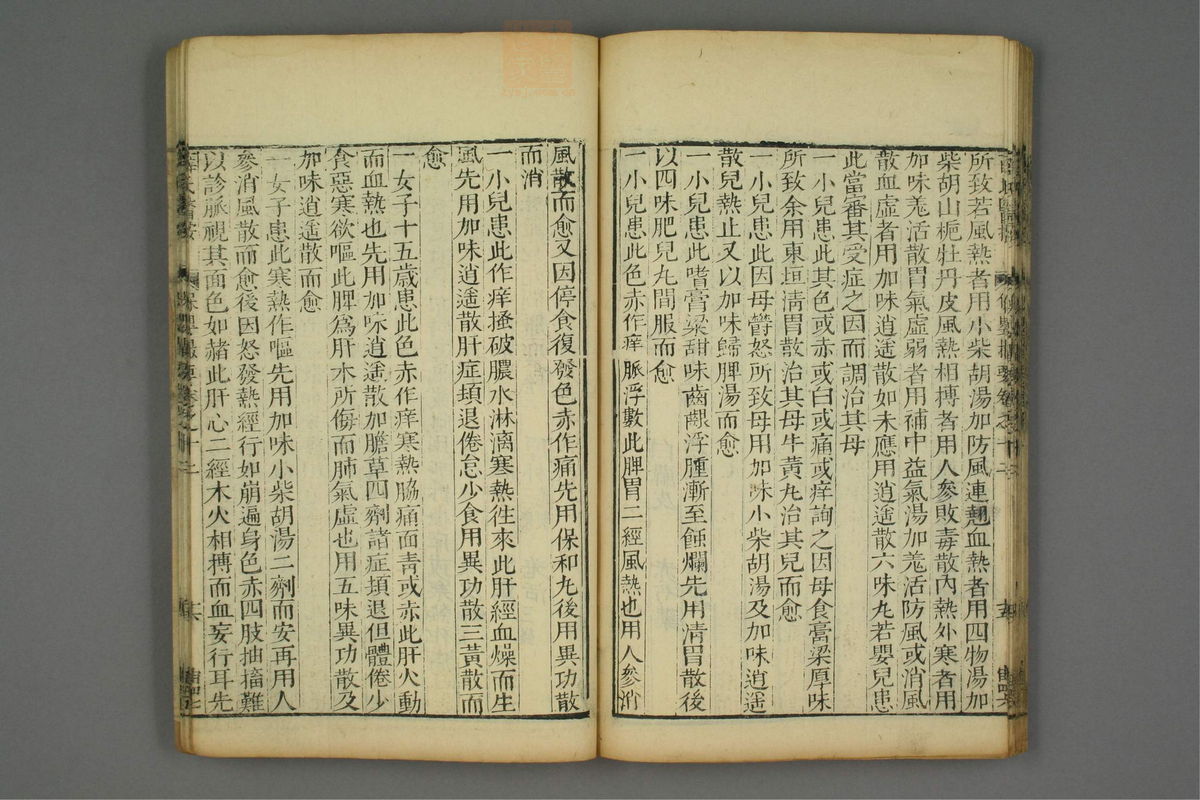 所致若風熱者用小柴胡湯加防風連翹血熱者用四物湯加
柴胡山梔牡丹皮風熱相摶者用人參敗毒散內熱外寒者用
加味羗活散胃氣虛弱者用補中益氣湯加羗活防風或消風
散血虛者用加味逍遥散如未應用逍遥散六味丸若嬰兒患
此當審其受症之因而調治其母
一小兒患此其色或赤或白或痛或痒詢之因母食膏粱厚味
所致余用東垣淸胃散治其母牛黃丸治其兒而愈
一小兒患此因母欝怒所致母用加味小柴胡湯及加味逍遥
散兒熱止又以加味歸脾湯而愈
一小兒患此嗜膏粱甜味齒齦浮腫漸至蝕爛先用淸胃散後
以四味肥兒丸間服而愈
一小兒患此色赤作痒脈浮數此脾胃二經風熱也用人參消
風散而愈又因停食復發色赤作痛先用保和丸後用異功散
而消
一小兒患此作痒搔破膿水淋漓寒熱徃來此肝經血燥而生
風先用加味逍遥散肝症頓退倦怠少食用異功散三黃散而
愈
一女子十五歲患此色赤作痒寒熱脇痛面靑或赤此肝火動
而血熱也先用加味逍遥散加膽草四劑諸症頓退但體倦少
食惡寒欲嘔此脾爲肝木所傷而肺氣虛也用五味異功散及
加味逍遥散而愈
一女子患此寒熱作嘔先用加味小柴胡湯二劑而安再用人
參消風散而愈後因怒發熱經行如崩遍身色赤四肢抽搐難
以診脈視其面色如赭此肝心二經木火相摶而血妄行耳先
薛氏醫按
保嬰撮要卷之十二